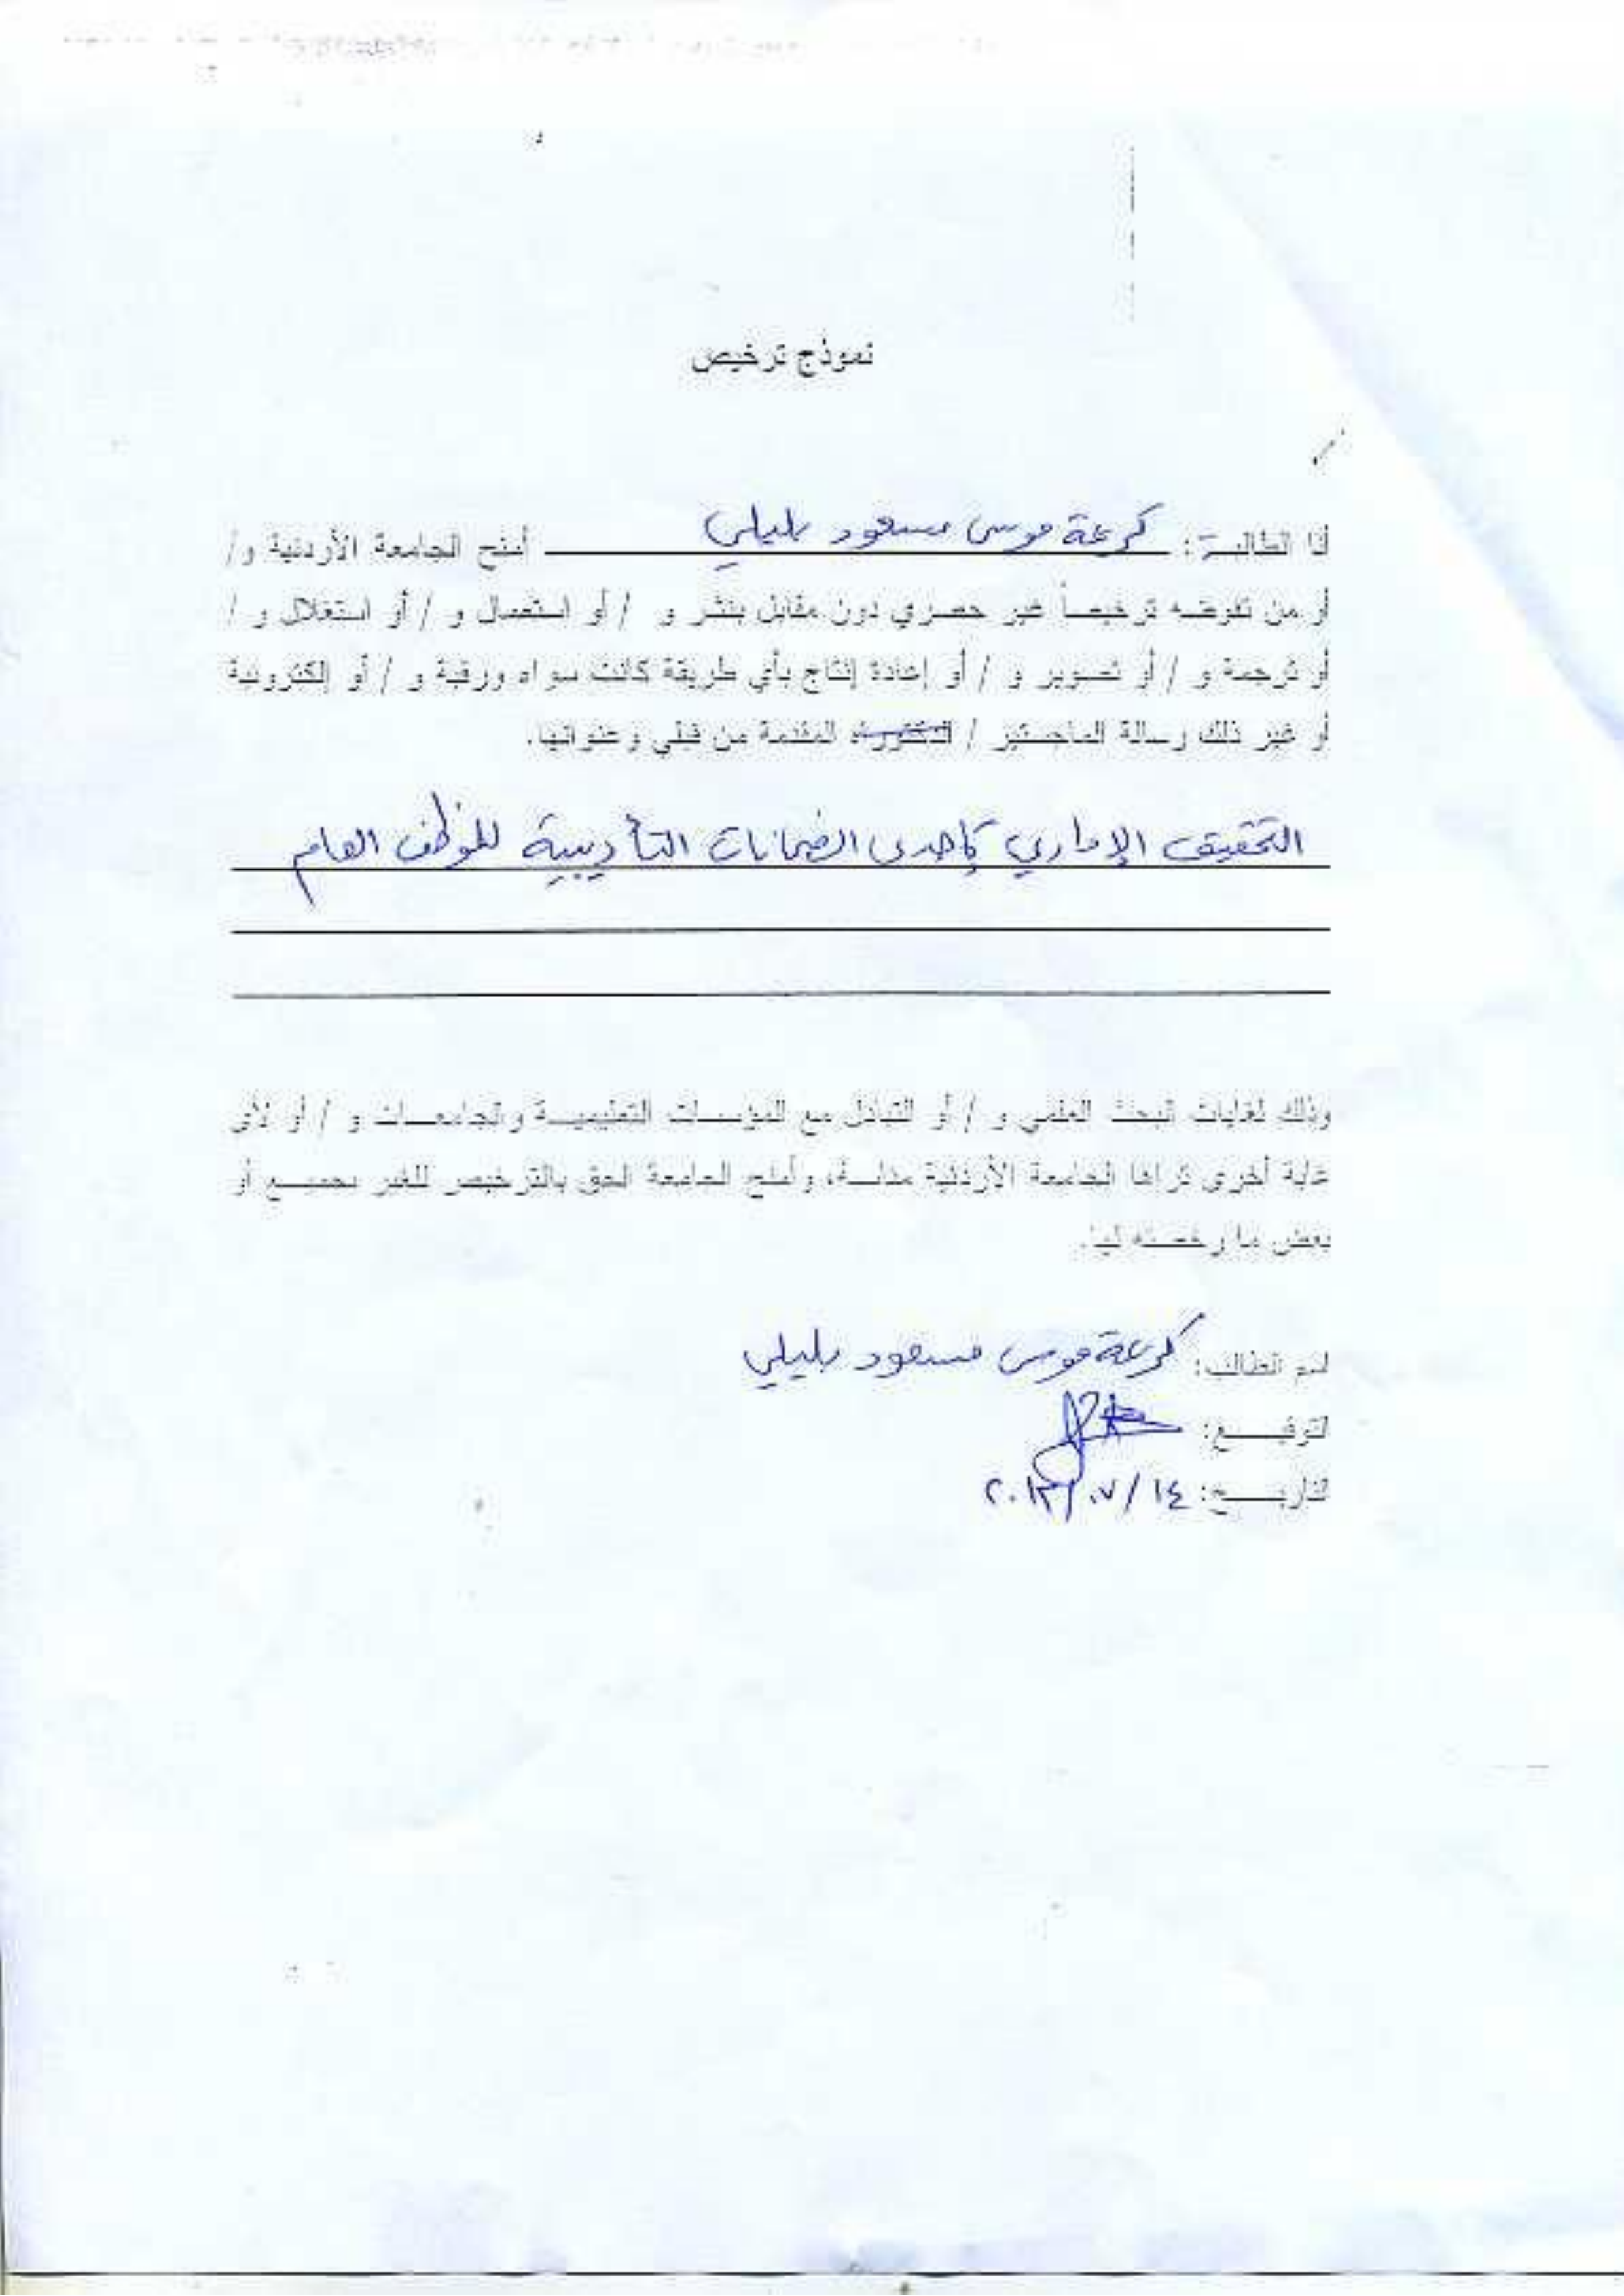 نموذج ترخيص
أنا الطالبة: كريمة موسى مسعود بليلي أمنح الجامعة الأردنية و/
أو من تفوضه ترخيصاً غير حصري دون مقابل بنشر و / أو استعمال و / أو استغلال و /
أو ترجمة و / أو تصوير و / أو إعادة إنتاج بأي طريقة كانت سواء ورقية و / أو إلكترونية
أو غير ذلك رسالة الماجستير / الدكتوراه المقدمة من قبلي وعنوانها.
التحقيق الإداري كإحدى الضمانات التأديبية للموظف العام
وذلك لغايات البحث العلمي و / أو التبادل مع المؤسسات التعليمية والجامعات و / أو لأي
غاية أخرى تراها الجامعة الأردنية مناسبة، وأمنح الجامعة الحق بالترخيص للغير بجميع أو
بعض ما رخصته لها.
اسم الطالب: كريمة موسى مسعود بليلي
التوقيع:
التاريخ: ١٤ / ٠٧ / ٢٠١٣